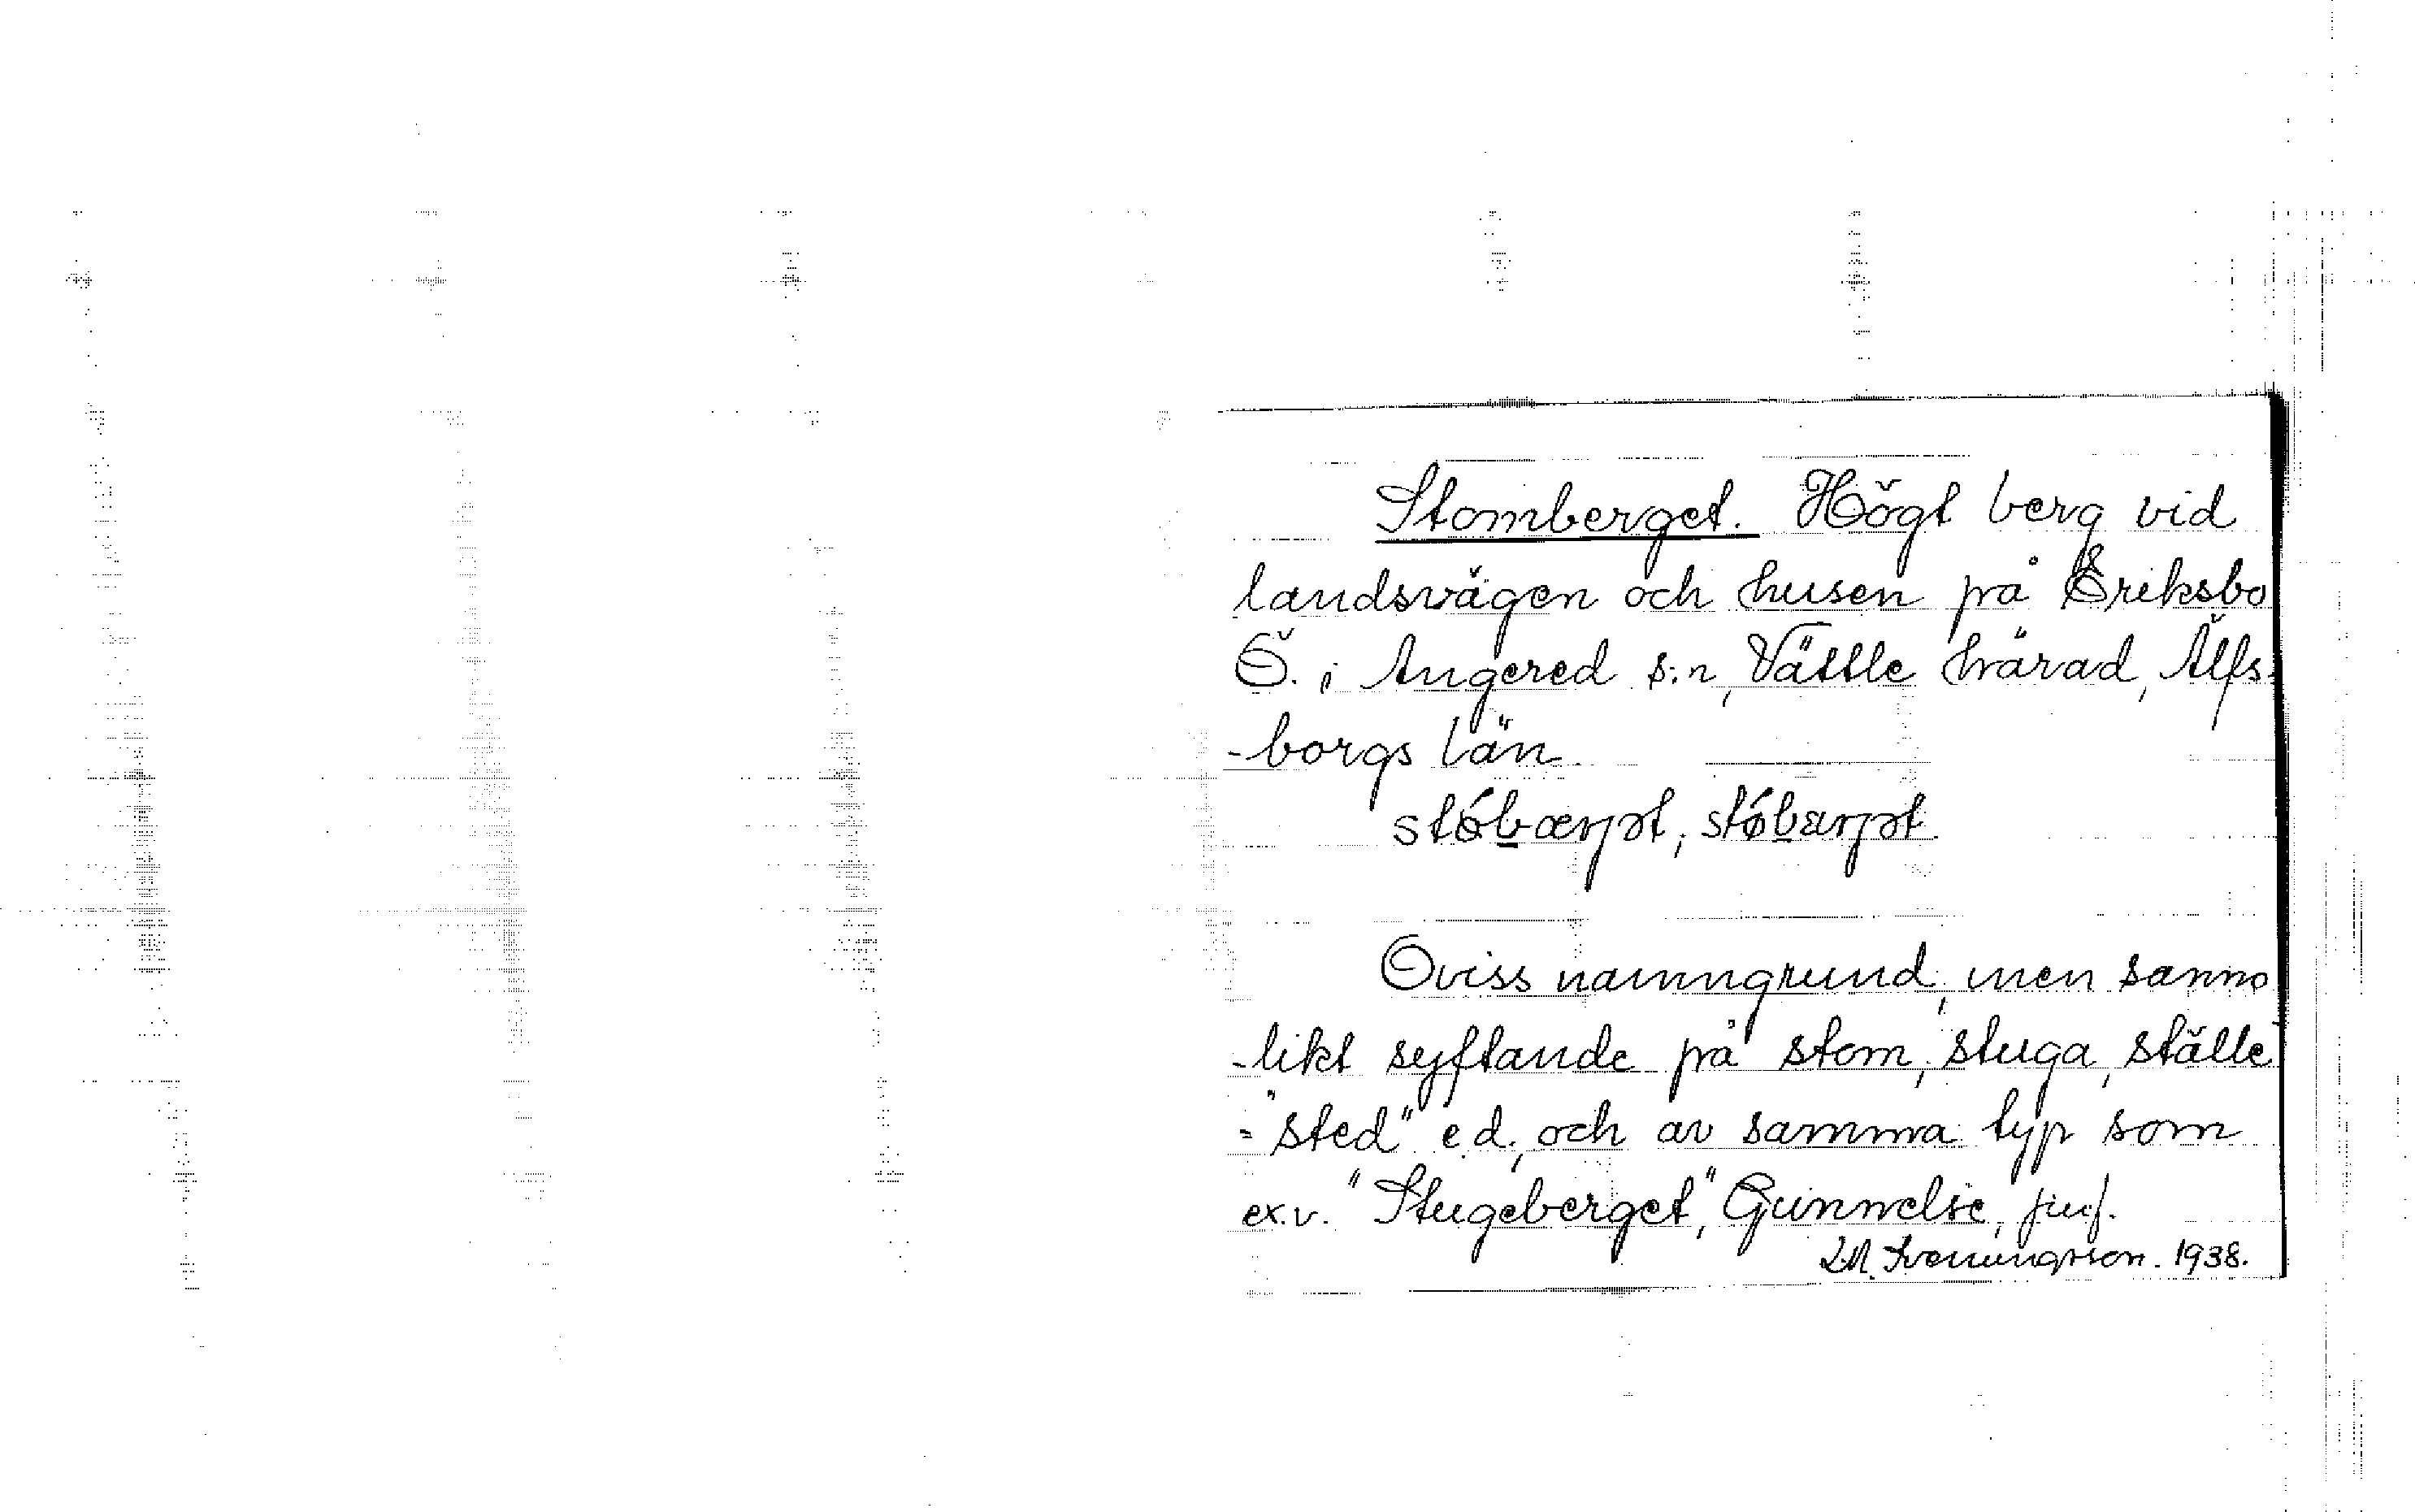 Stomberget. Högt berg vid
landsvägen och husen på Eriksbo
Ö. i Angered s:n, Vättle härad, Älfs-
-borgs län.
Oviss namngrund, men sanno
-likt syftande på stom, stuga, ställe
-"sted" e.d., och av samma typ som
ex.v. "Stugeberget," Gunnelse, juf.
1938.